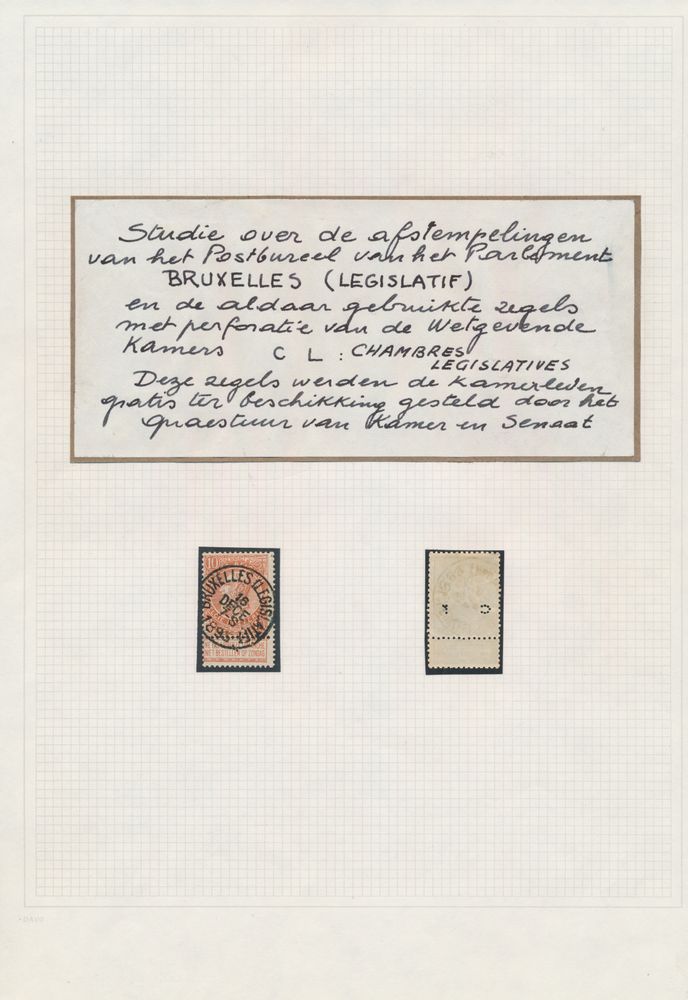 Studie over de afstempelingen
van het Postbureel van het Parlement
BRUXELLES (LEGISLATIF)
en de aldaar gebruikte zegels
met perforatie van de Wetgevende
Kamers C L : CHAMBRES
LEGISLATIVES
Deze zegels werden de Kamerleden
gratis ter beschikking gesteld door het
Quaestuur van Kamer en Senaat
10
BRUXELLES (LEGISLATIF)
16
DECE
1893
NIET BESTELLEN OP ZONDAG
DAVO